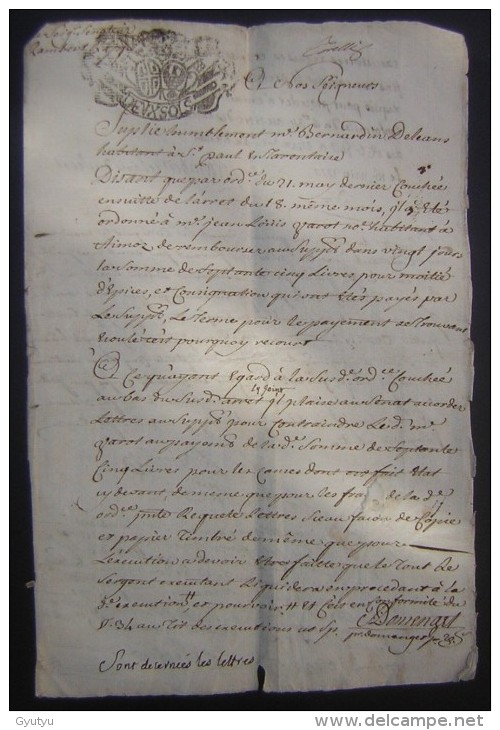 A Nos Seigneurs
Suplie humblement mᵉ Bernardin Deleans
habitant à Sᵗ paul en Tarentaise
Disant que par ordᶜᵉ du 21. may dernier Couchée
ensuitte de l'arret du 18. même mois, il a été
ordonné à mᵉ jean Loüis varot noʳᵉ habitant à
Aimoz de rembourser au suppᵗ dans vingt jours
la somme de septante cinq Livres pour moitié
d'épices, et Consignation qui ont étés payés par
Le suppᵗ, Le Terme pour le payement se trouvant
écoulé c'est pourquoy recourt
A Ce qu'ayant égard à la susdᵗᵉ ordᶜᵉ Couchée
au bas du susdᵗ arret y joint il plaise au senat accorder
Lettres au suppᵗ pour Contraindre Ledᵗ mᵉ
varot au payement de ladᵗᵉ Somme de septante
Cinq Livres pour les causes dont est fait état
cy devant, de meme que pour les frais de la dᵗᵉ
ordᶜᵉ pnte Requete Lettres sceau façon de Copie
et papier Timbré de même que pour
L'execution a devoir etre faitte que le Tout Le
Sergent executant Liquidera en procedant à la
dᵉ execution, et pourvoir. Et Ce en Conformité du
§. 34 au Tit des executions
Domenget
Sont decernées les lettres
Gyutyu
delcampe.net